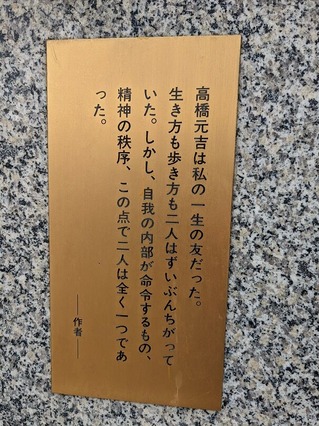 高橋元吉は私の一生の友だった。
生き方も歩き方も二人はずいぶんちがって
いた。しかし、自我の内部が命令するもの、
精神の秩序、この点で二人は全く一つであ
った。
──作者──